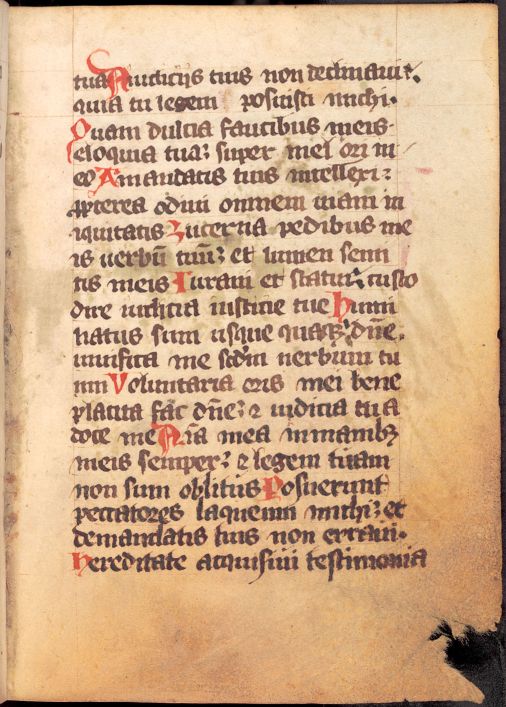 tua A iudicijs tuis non declinaui:
quia tu legem posuisti michi.
Quam dulcia faucibus meis
eloquia tua: super mel ori m
eo A mandatis tuis intellexi:
ꝓpterea odiui omnem uiam in
iquitatis Lucerna pedibus me
is uerbū tuū: et lumen semi
tis meis Iuraui et statui: custo
dire iudicia iusticie tue Humi
liatus sum usque quaqꝫ: dn̄e.
uiuifica me scdm uerbum tu
um Voluntaria oris mei bene
placita fac dn̄e: ⁊ iudicia tua
doce me Aīa mea in manibꝫ
meis semper: ⁊ legem tuam
non sum oblitus Posuerunt
peccatores laqueum michi: et
demandatis tuis non erraui.
Hereditate acquisiui testimonia